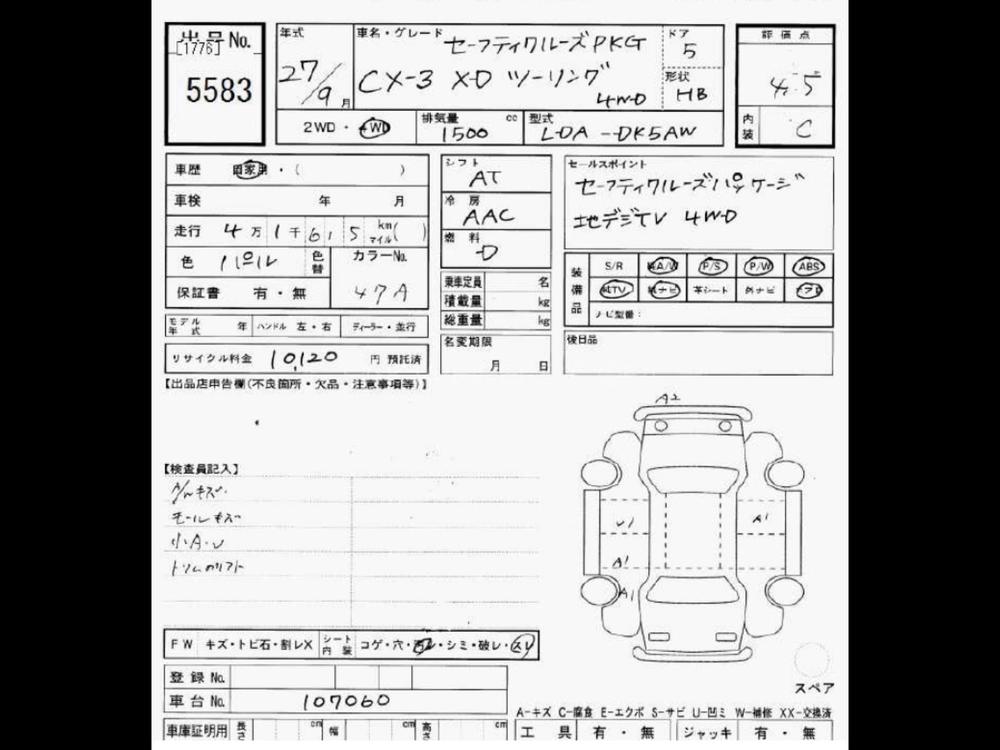 出号 No.
[1776]
5583
年式
27/9月
車名・グレード
セーフティクルーズPKG
CX-3 XD ツーリング
4WD
ドア
5
形状
HB
評価点
4.5
内装
C
2WD・4WD
排気量
1500 cc
型式
LDA-DK5AW
車歴 自家用・( )
車検 年 月
走行 4万1千615 km マイル( )
色 パール 色替
カラーNo.
47A
保証書 有・無
モデル年式 年 ハンドル 左・右 ディーラー・並行
リサイクル料金 10,120 円 預託済
シフト
AT
冷房
AAC
燃料
D
乗車定員 名
積載量 kg
総重量 kg
名変期限
月 日
セールスポイント
セーフティクルーズパッケージ
地デジTV 4WD
装備品
S/R A/W P/S P/W ABS
純TV 純ナビ 革シート 外ナビ エアB
ナビ型番:
後日品
【出品店申告欄(不良箇所・欠品・注意事項等)】
【検査員記入】
A/Wキズ
モールキズ
小A・U
A2
U1
A1
A1
A1
スペア
FW キズ・トビ石・割レX シート内装 コゲ・穴・汚レ・シミ・破レ・スレ
登録No.
車台No. 107060
A-キズ C-腐食 E-エクボ S-サビ U-凹ミ W-補修 XX-交換済
車庫証明用 長さ cm 幅 cm 高さ cm
工具 有・無 ジャッキ 有・無